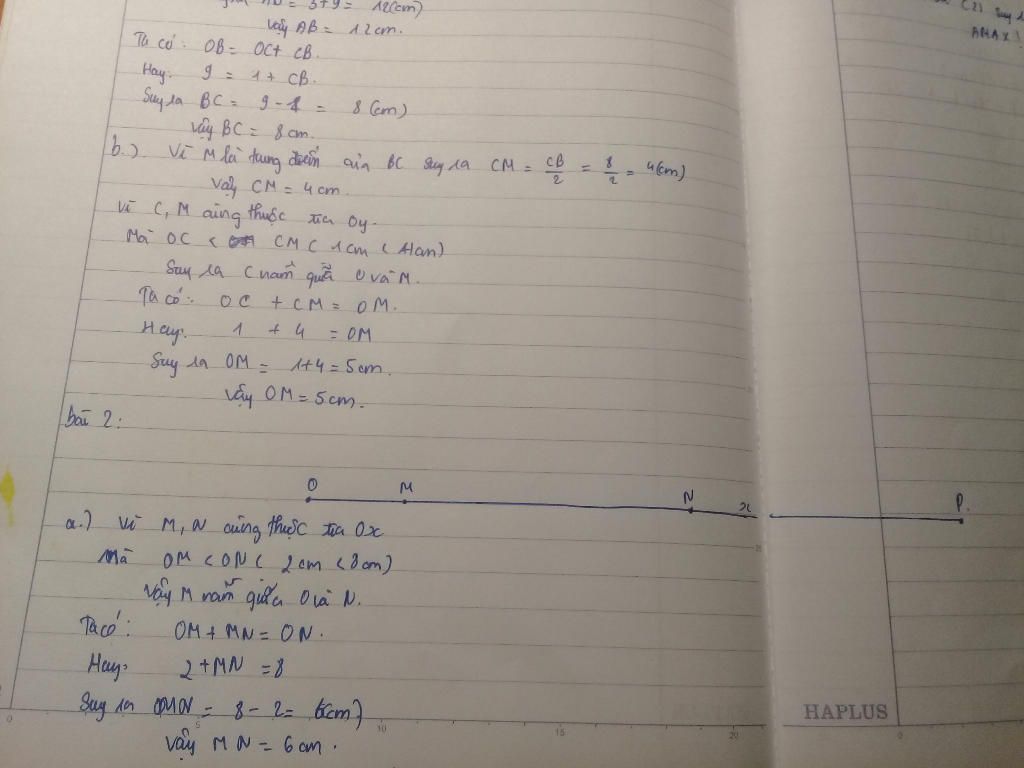 = 3+9 = 12(cm)
vậy AB = 12cm.
Ta có: OB = OC + CB.
Hay: 9 = 1 + CB.
Suy ra BC = 9 - 1 = 8 (cm)
vậy BC = 8cm.
b.) Vì M là trung điểm của BC suy ra CM = CB/2 = 8/2 = 4(cm)
Vậy CM = 4cm.
Vì C, M cùng thuộc tia Oy.
Mà OC < CM ( 1cm < 4cm)
Suy ra C nằm giữa O và M.
Ta có: OC + CM = OM.
Hay: 1 + 4 = OM
Suy ra OM = 1+4 = 5cm.
vậy OM = 5cm.
Bài 2:
O M N x P.
a.) Vì M, N cùng thuộc tia Ox
Mà OM < ON ( 2cm < 8cm)
Vậy M nằm giữa O và N.
Ta có: OM + MN = ON.
Hay: 2 + MN = 8
Suy ra MN = 8 - 2 = 6(cm)
Vậy MN = 6cm.
0 5 10 15 20
HAPLUS
0
(2) suy ra